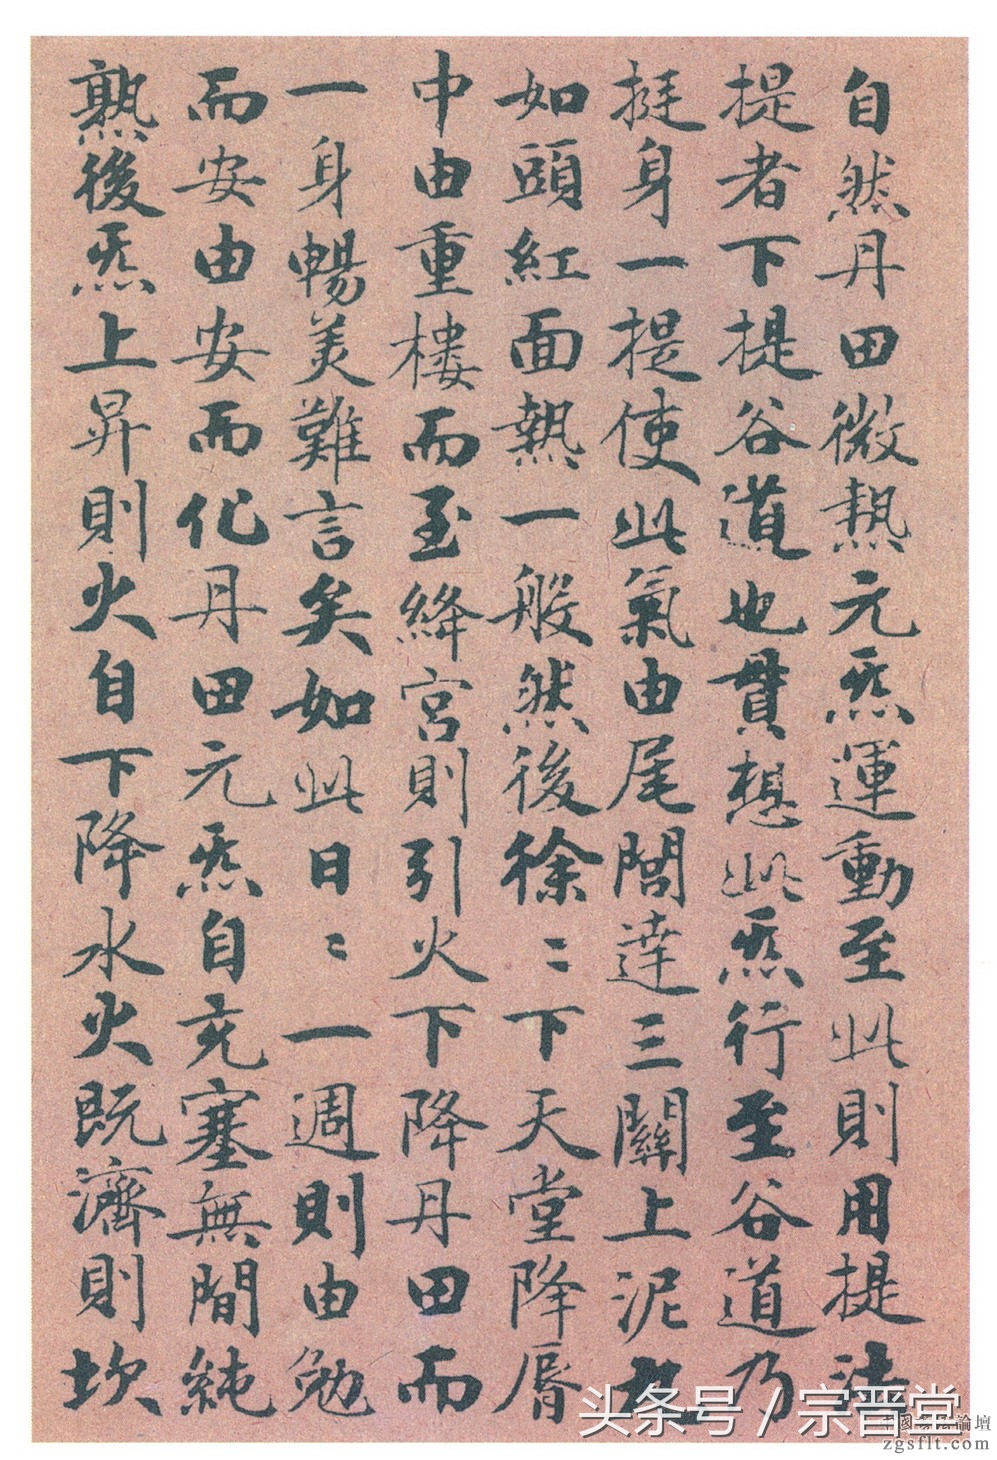 自然丹田微熱元炁運動至此則用提法
提者下提谷道也貫想此炁行至谷道乃
挺身一提使此氣由尾閭達三關上泥丸
如頭紅面熱一般然後徐〻下天堂降脣
中由重樓而至絳宮則引火下降丹田而
一身暢美難言矣如此日〻一週則由勉
而安由安而化丹田元炁自充塞無間純
熟後炁上昇則火自下降水火既濟則坎
头条号 / 宗晋堂
中國書法論壇
zgsflt.com